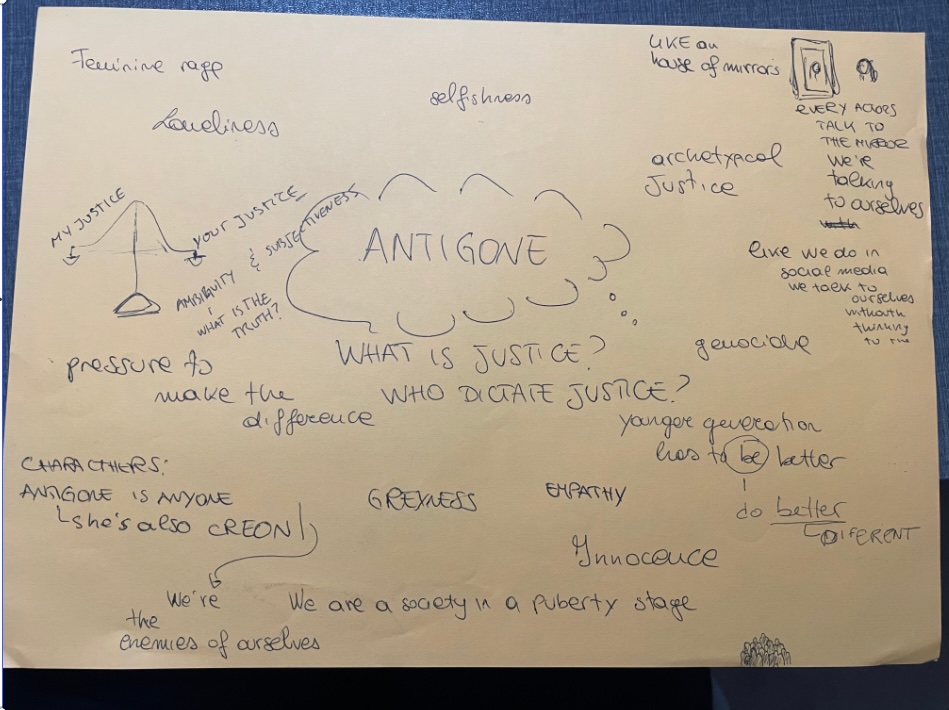 Feminine rage
Loneliness
selfishness
LIKE an
house of mirrors
EVERY ACTORS
TALK TO
THE MIRROR
We're
talking
to ourselves
like we do in
social media
we talk to
ourselves
thinking
to
archetypical
Justice
MY JUSTICE
YOUR JUSTICE
AMBIGUITY & SUBJECTIVENESS
WHAT IS THE
TRUTH?
ANTIGONE
WHAT IS JUSTICE?
WHO DICTATE JUSTICE?
pressure to
make the
difference
genocide
yanger generation
has to be better
do better
DIFERENT
CHARACTHERS:
ANTIGONE IS ANYONE
she's also CREON
We're
the
enemies of ourselves
GREYNESS
EMPATHY
Innocence
We are a society in a puberty stage